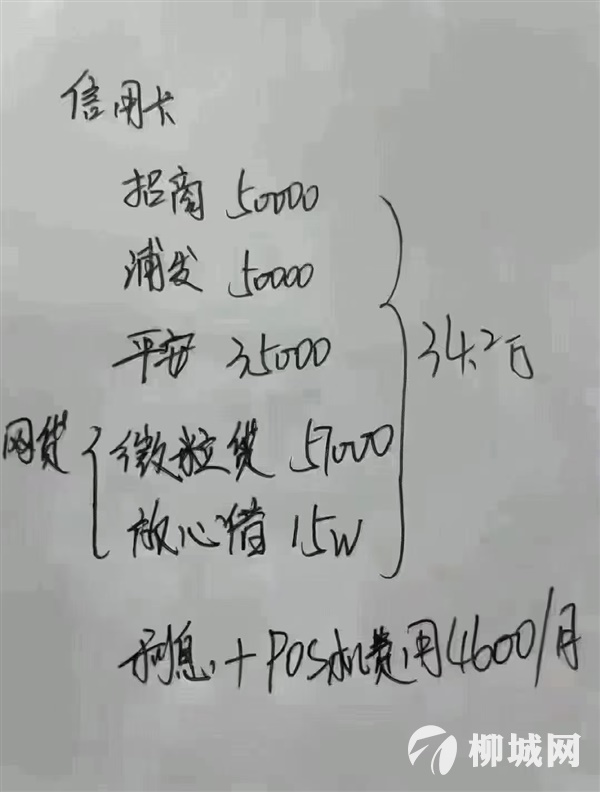 信用卡
招商 50000
浦发 50000
平安 35000
34.2万
网贷
微粒贷 57000
放心借 15W
利息+POS机费用4600/月
柳城网